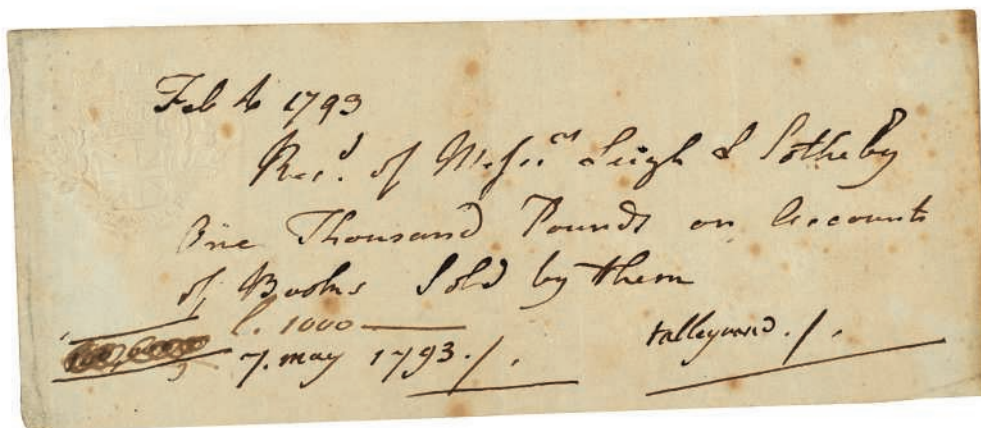 Feb 4 1793
Rec.d of Mess.rs Leigh & Sotheby
One Thousand Pounds on Accounts
of Books Sold by them
l. 1000
7. may 1793./.
talleyrand./.